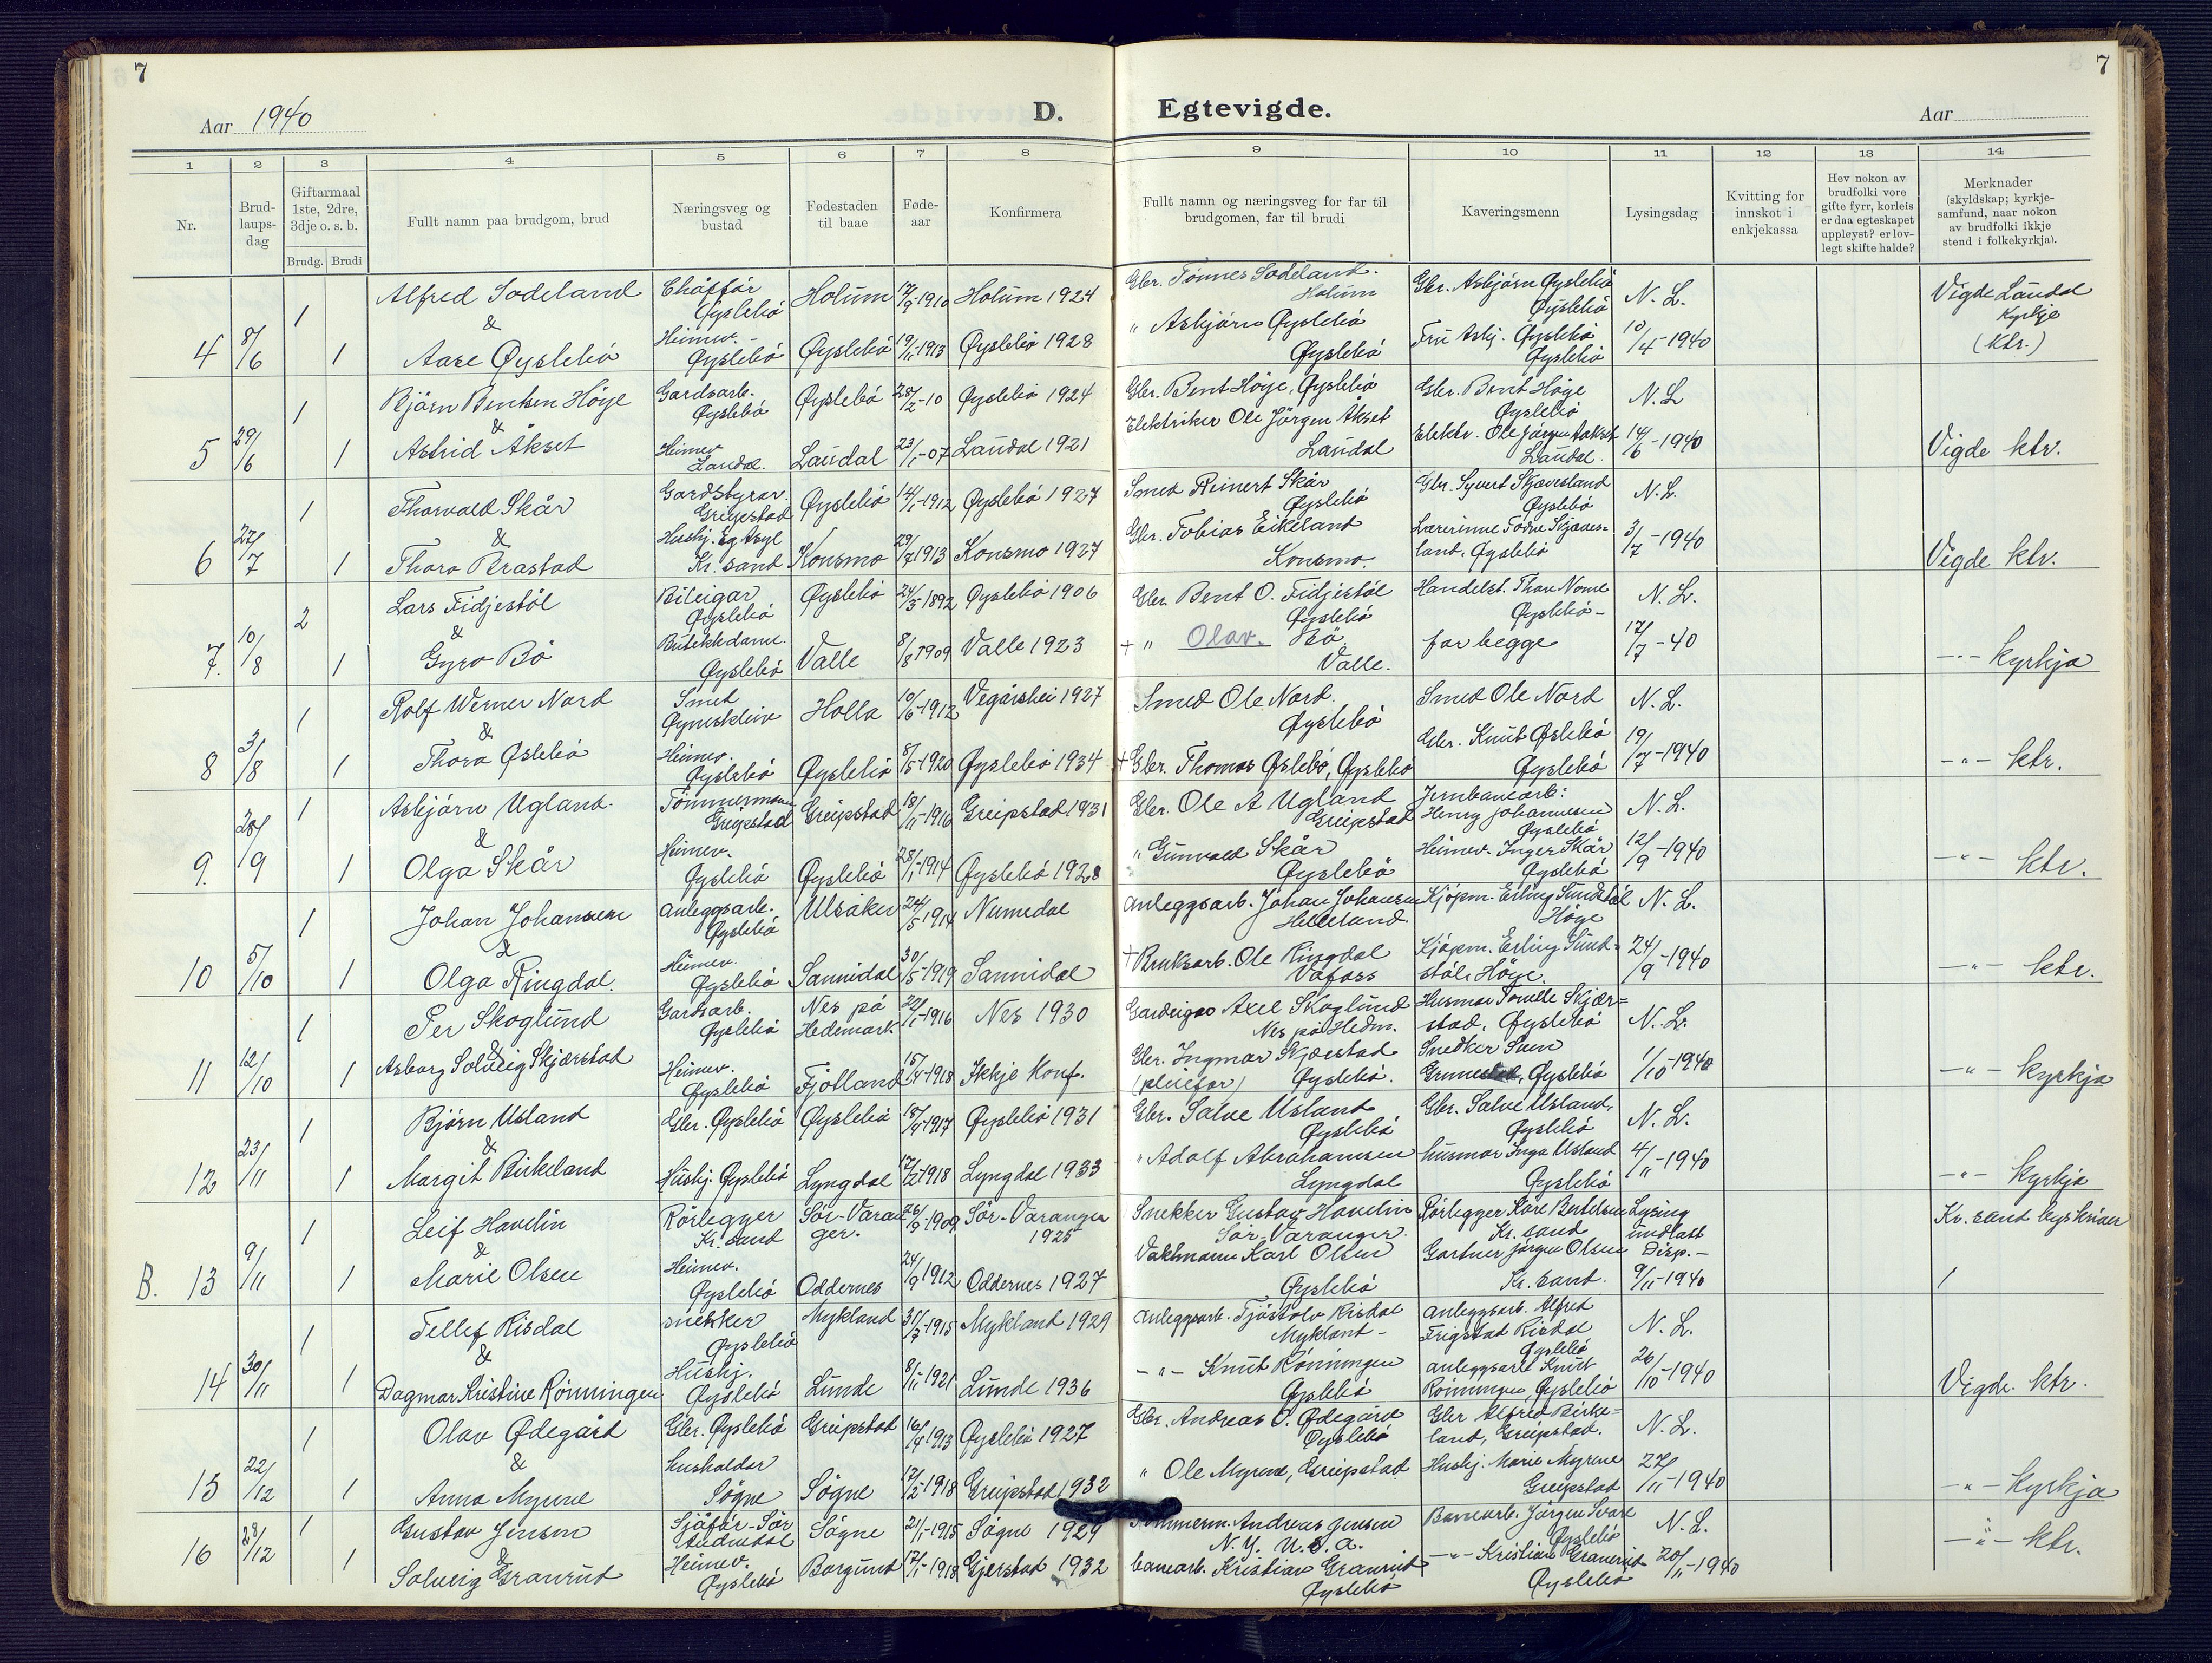 7
7
Aar 1940
D.
Egtevigde.
Aar
1
2
3
4
5
6
7
8
9
10
11
12
13
14
Nr.
Brud-
laups-
dag
Giftarmaal
1ste, 2dre,
3dje o. s. b.
Brudg.
Brudi
Fullt namn paa brudgom, brud
Næringsveg og
bustad
Fødestaden
til baae
Føde-
aar
Konfirmera
Fullt namn og næringsveg for far til
brudgomen, far til brudi
Kaveringsmenn
Lysingsdag
Kvitting for
innskot i
enkjekassa
Hev nokon av
brudfolki vore
gifte fyrr, korleis
er daa egteskapet
uppløyst? er lov-
legt skifte halde?
Merknader
(skyldskap; kyrkje-
samfund, naar nokon
av brudfolki ikkje
stend i folkekyrkja).
4 8/6 1 1
Alfred Sodeland
&
Aase Øyslebö
Chåffór
Øyslebö
Heimev. -
Øyslebö
Holum
Øyslebö
17/9-1910
19/11-1913
Holum 1924
Øyslebö 1928
Gbr. Tönnes Sodeland.
Holum
" Asbjörn Øyslebö
Øyslebö
Gbr. Asbjörn Øyslebö
Øyslebö
Fru Asbj. Øyslebö
Øyslebö
N. L.
10/4-1940
Vigde Laudal
Kyrkje
(ktr.)
5 29/6 1 1
Björn Bentsen Höye
&
Astrid Åkset
Gardsarb.
Øyslebö
Heimev
Laudal.
Øyslebö
Laudal
28/2-10
23/1-07
Øyslebö 1924
Laudal 1921
Gbr. Bent Höye, Øyslebö
Elektriker Ole Jörgen Åkset
Laudal
Gbr. Bent Höye
Øyslebö
Elektr. Ole Jörgen Aakset
Laudal.
N. L
14/6-1940
Vigde ktr.
6 27/7 1 1
Thorvald Skår
&
Thora Brastad
Gardstyrar.
Greipstad
Kr. sand
Øyslebö
Konsmo
14/1-1912
29/7 1913
Øyslebö 1927
Konsmo 1927
Smed Reinert Skår
Øyslebö
Gbr. Tobias Eikeland
Konsmo.
Gbr. Syvert Skjævesland
Øyslebö
Lærerinne Todne Skjæves=
land, Øyslebö
N. L.
3/7-1940
Vigde ktr.
7. 10/8 2 1
Lars Fidjestöl
&
Gyro Bö
Bileigar
Øyslebö
Butikkdame.
Øyslebö
Øyslebö
Valle
24/5-1892
8/8 1909
Øyslebö 1906
Valle 1923
Gbr. Bent O. Fidjestöl
Øyslebö
+ " Olav. Bö
Valle.
Handelst. Thor Nome
Øyslebö-
for begge
N. L.
17/7-40
-"- kyrkja
8 3/8 1 1
Rolf Werner Nord
&
Thora Øslebö
Smed
Øynaskleiv
Heimev.
Øyslebö
Holla
Øyslebö
10/6-1912
8/5-1920
Vegårshei 1927
Øyslebö 1934
Smed Ole Nord.
Øyslebö
+ Gbr. Thomas Øslebö, Øyslebö
Smed Ole Nord
Gbr. Knut Øslebö
Øyslebö
N. L.
19/7-1940
-"- ktr.
9. 28/9 1 1
Asbjörn Ugland.
&
Olga Skår
Tömmermann
Greipstad
Heimev.
Øyslebö
Greipstad
Øyslebö
18/11-1916
28/1-1914
Greipstad 1931
Øyslebö 1928
Gbr. Ole A Ugland
Greipstad
" Gunvald Skår
Øyslebö
Jernbanearb:
Henry Johannesen
Øyslebö
Heimev. Inger Skår
Øyslebö
N. L.
12/9-1940
-"- ktr.
10 5/10 1 1
Johan Johansen
&
Olga Ringdal.
Anleggsarb.
Øyslebö
Heimev.
Øyslebö
Ulsåker
Sannidal
24/5-1914
30/5-1919
Numedal
Sannidal
Anleggsarb. Johan Johansen
Helleland.
+ Bruksarb. Ole Ringdal
Vafoss
Kjöpm. Erling Sundstöl
Höye
Kjöpm. Erling Sund=
stöl. Höye.
N. L.
24/9-1940
-"- ktr.
11 12/10 1 1
Per Skoglund
&
Asborg Solveig Skjærstad
Gardsarb.
Øyslebö
Heimev.
Øyslebö
Nes på
Hedemark
Fjotland
22/1-1916
15/4-1918
Nes 1930
Ikkje Konf.
Gardeigar Axel Skoglund
Nes på Hedm.
Gbr. Ingmar Skjærstad
(pleiefar) Øyslebö.
Husmor Torelle Skjær=
stad, Øyslebö
Snedker Sven
Øyslebö
N. L.
1/10-1940
-"- kyrkja
12 23/11 1 1
Björn Usland
&
Margit Birkeland
Gbr. Øyslebö
Hushj. Øyslebö
Øyslebö
Lyngdal
18/4-1917
17/2-1918
Øyslebö 1931
Lyngdal 1933
Gbr. Salve Usland
Øyslebö
" Adolf Abrahamsen
Lyngdal
Gbr. Salve Usland,
Øyslebö
husmor Inga Usland
Øyslebö
N. L.
4/11-1940
-"- kyrkja
B. 13 9/11 1 1
Leif Havelin
&
Marie Olsen
Rörlegger
Kr. sand
Heimev.
Øyslebö
Sör-Varan
ger.
Oddernes
26/9-1909
24/9 1912
Sör-Varanger
1925
Oddernes 1927
Snekker Gustav Havelin
Sör-Varanger.
Vaktmann Karl Olsen
Øyslebö
Rörlegger Kåre Bertelsen
Kr. sand
Gartner Jörgen Olsen
Kr. sand.
Lysing
undlatt
Disp.-
9/11-1940
Kr. sand byskriver
1
14 30/11 1 1
Tellef Risdal
&
Dagmar Kristine Rönningen
snekker
Øyslebö
Hushj.
Øyslebö
Mykland
Lunde
31/7-1915
8/11-1921
Mykland 1929
Lunde 1936
Anleggsarb. Tjöstolv Risdal
Mykland-
-"- Knut Rönningen
Øyslebö
Anleggsarb. Alfred
Frigstad Risdal
Øyslebö
Anleggsarb Knut
Rönningen, Øyslebö
N. L.
26/10-1940
Vigde. ktr.
15 22/12 1 1
Olav Ødegård
&
Anna Myrene
Gbr. Øyslebö
husholder
Søgne
Greipstad
Søgne
16/4 1913
17/2-1918
Øyslebö 1927
Greipstad 1932
Gbr. Andreas O. Ødegård
Øyslebö
" Ole Myrene, Greipstad
Gbr Alfred Birke=
land, Greipstad.
Hushj. Marie Myrene
Greipstad
N. L.
27/11-1940
-"- kyrkja
16 28/12 1 1
Gustav Jensen
&
Solveig Granrud
Sjåfør-Sör
Audnedal
Heimev.
Øyslebö
Søgne
Borgund
21/1-1915
17/1-1918
Søgne 1929
Gjerstad 1932
Tömmerm. Andreas Jensen
N. Y. U. S. A.
banearb. Kristian Granrud
Øyslebö
Banearb. Jörgen
Øyslebö
-"- Kristian Granrud
Øyslebö
N. L.
20/11-1940
-"- ktr.